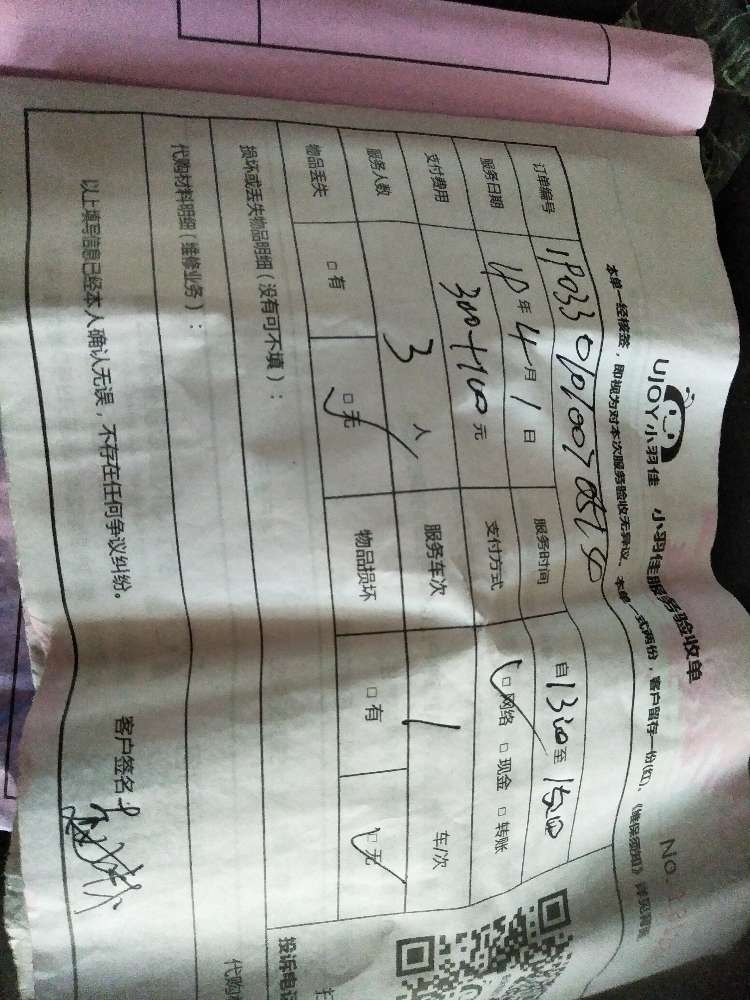 UJOY小羽佳 小羽佳服务验收单
No.
本单一经核签，即视为对本次服务验收无异议。本单一式两份，客户留存一份(红)，《维保须知》详见背面
订单编号
服务日期 年 4 月 1 日 服务时间 自 至
支付费用 300+100 元 支付方式 □网络 □现金 □转账
服务人数 3 人 服务车次 1 车/次
物品丢失 □有 □无 物品损坏 □有 □无
损坏或丢失物品明细（没有可不填）：
代购材料明细（维修业务）：
以上填写信息已经本人确认无误，不存在任何争议纠纷。 客户签名
投诉电话
代购